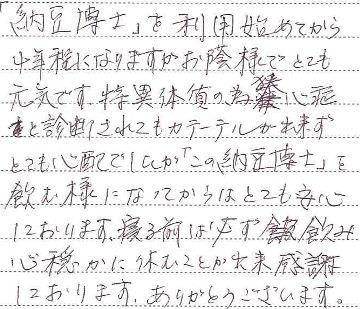 「納豆博士」を利用始めてから
半年程になりますがお蔭様でとても
元気です。特異体質の為 狭心症
と診断されてもカテーテルが出来ず
とても心配でしたが「この納豆博士」を
飲む様になってからはとても安心
しております。寝る前は必ず 飲み
心穏かに休むことが出来感謝
しております。ありがとうございます。